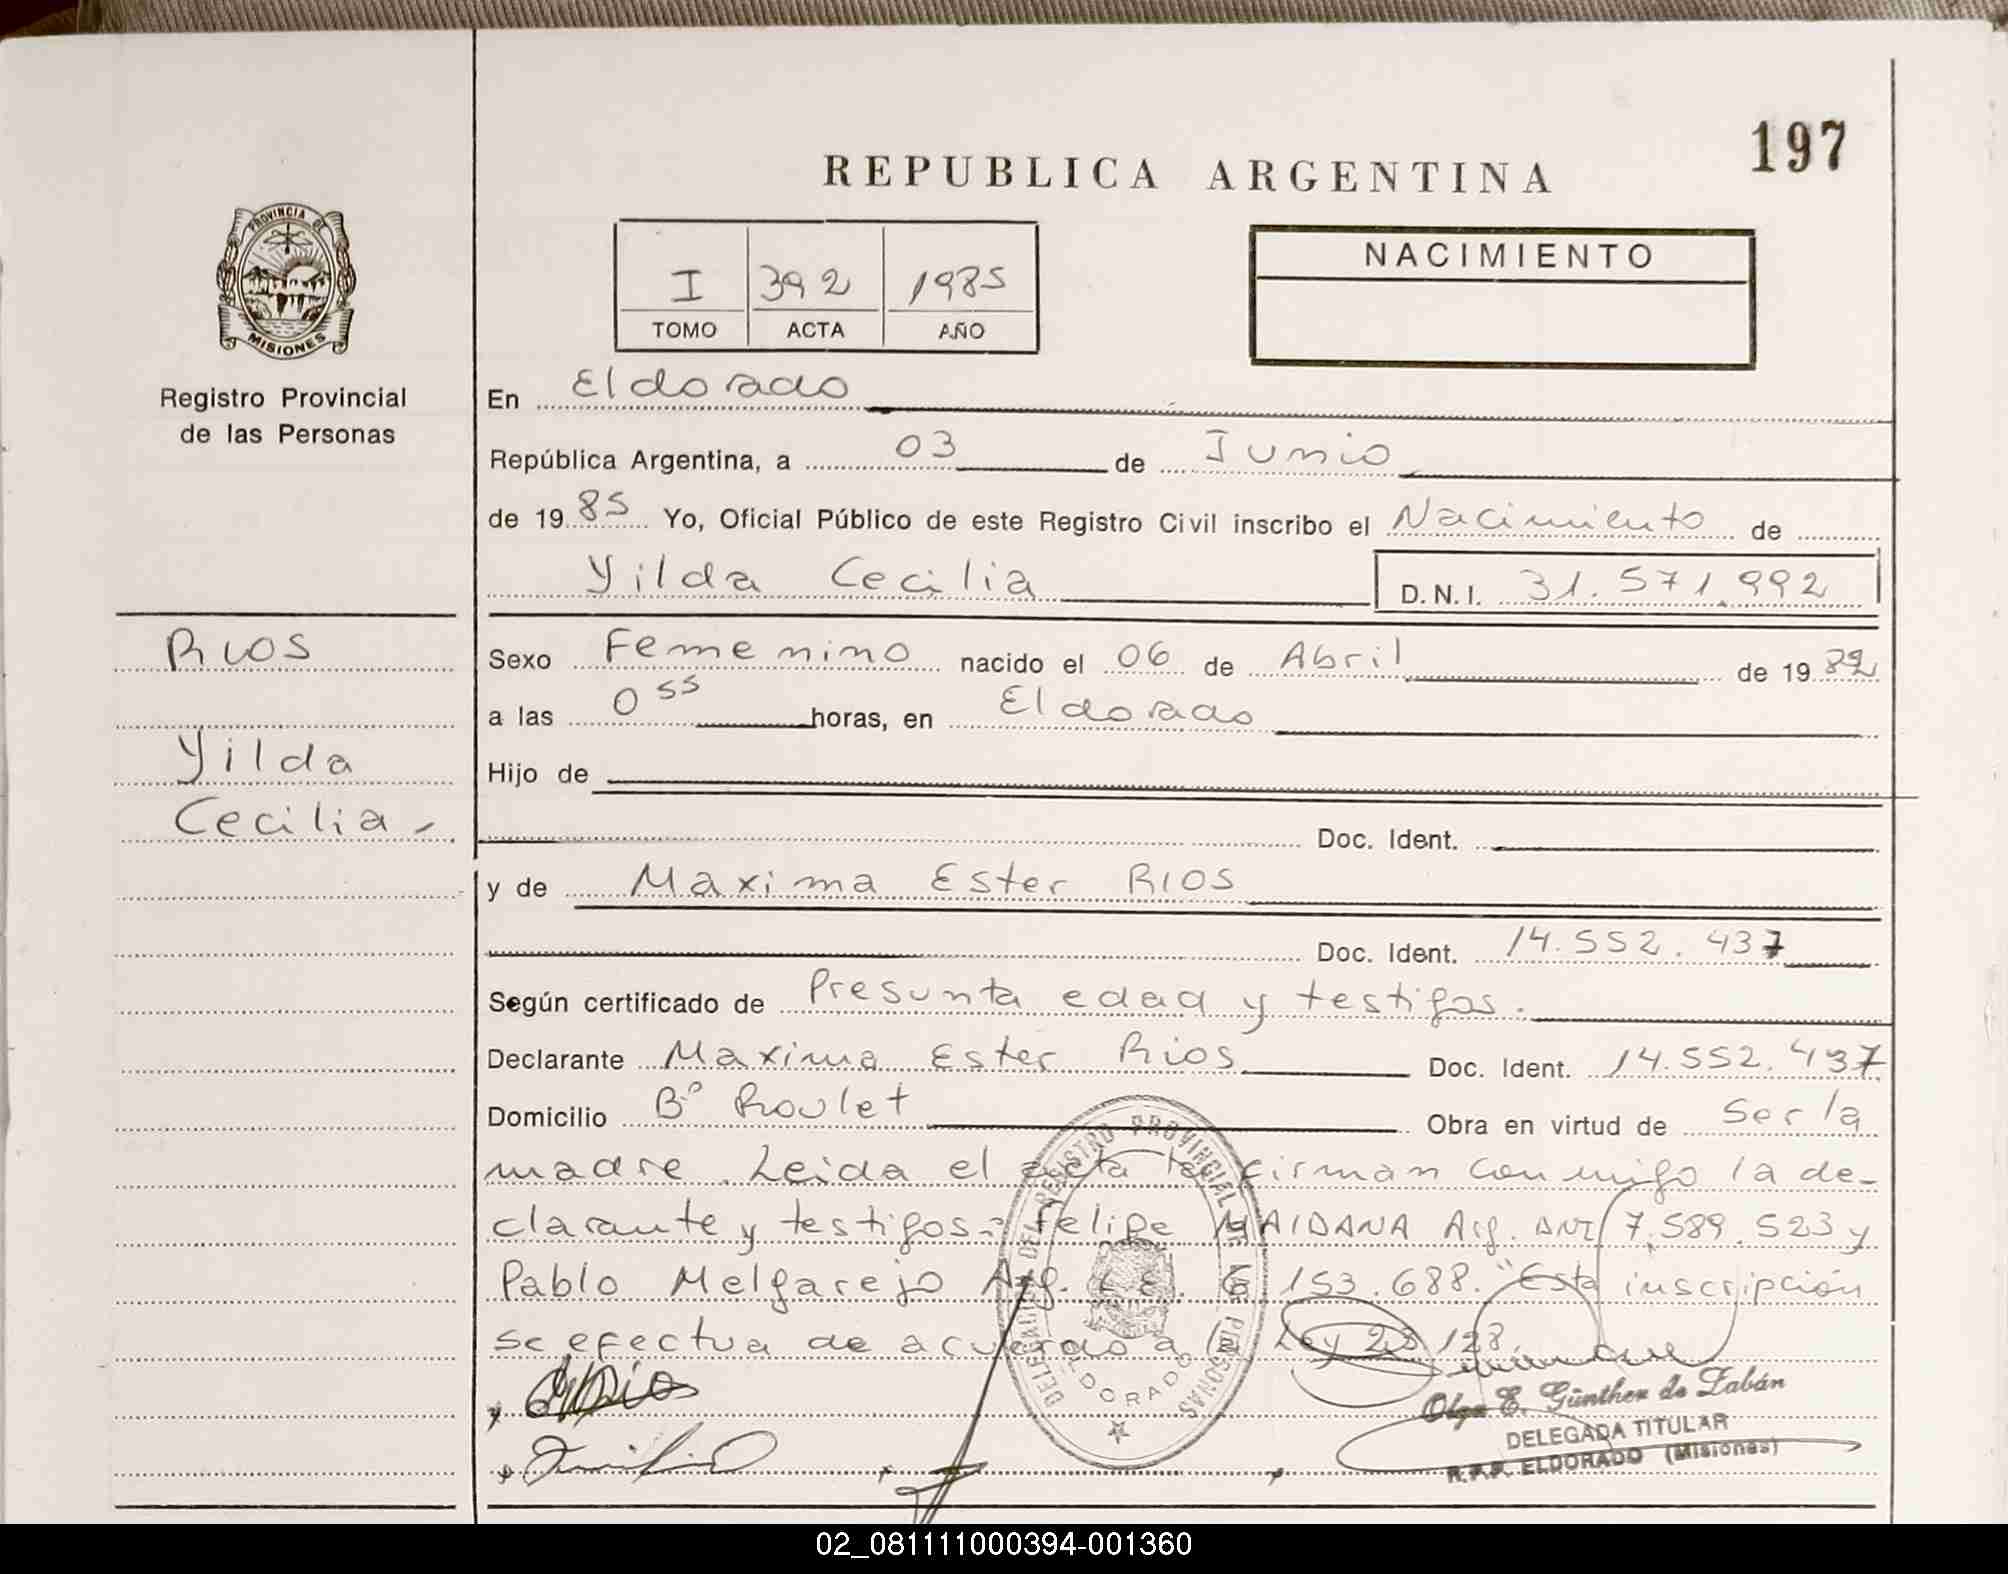 197
REPUBLICA ARGENTINA
PROVINCIA DE
MISIONES
Registro Provincial
de las Personas
I 392 1985
TOMO ACTA AÑO
NACIMIENTO
En Eldorado
República Argentina, a 03 de Junio
de 1985 Yo, Oficial Público de este Registro Civil inscribo el Nacimiento de
Yilda Cecilia D.N.I. 31.571.992
Rios
Yilda
Cecilia.-
Sexo Femenino nacido el 06 de Abril de 1982
a las 0 55 horas, en Eldorado
Hijo de
Doc. Ident.
y de Maxima Ester RIOS
Doc. Ident. 14.552.437
Según certificado de Presunta edad y testigos.
Declarante Maxima Ester Rios Doc. Ident. 14.552.437
Domicilio Bº Roulet Obra en virtud de Ser la
madre. Leida el acta la firman conmigo la de-
clarante y testigos: Felipe MAIDANA Arg. DNI 7.589.523 y
Pablo Melgarejo Arg. L.E. 153.688. "Esta inscripción
se efectua de acuerdo a la Ley 23.128
DELEGACION DEL REGISTRO PROVINCIAL DE LAS PERSONAS
ELDORADO
Olga E. Günther de Zabán
DELEGADA TITULAR
R.P.P. ELDORADO (Misiones)
02_081111000394-001360